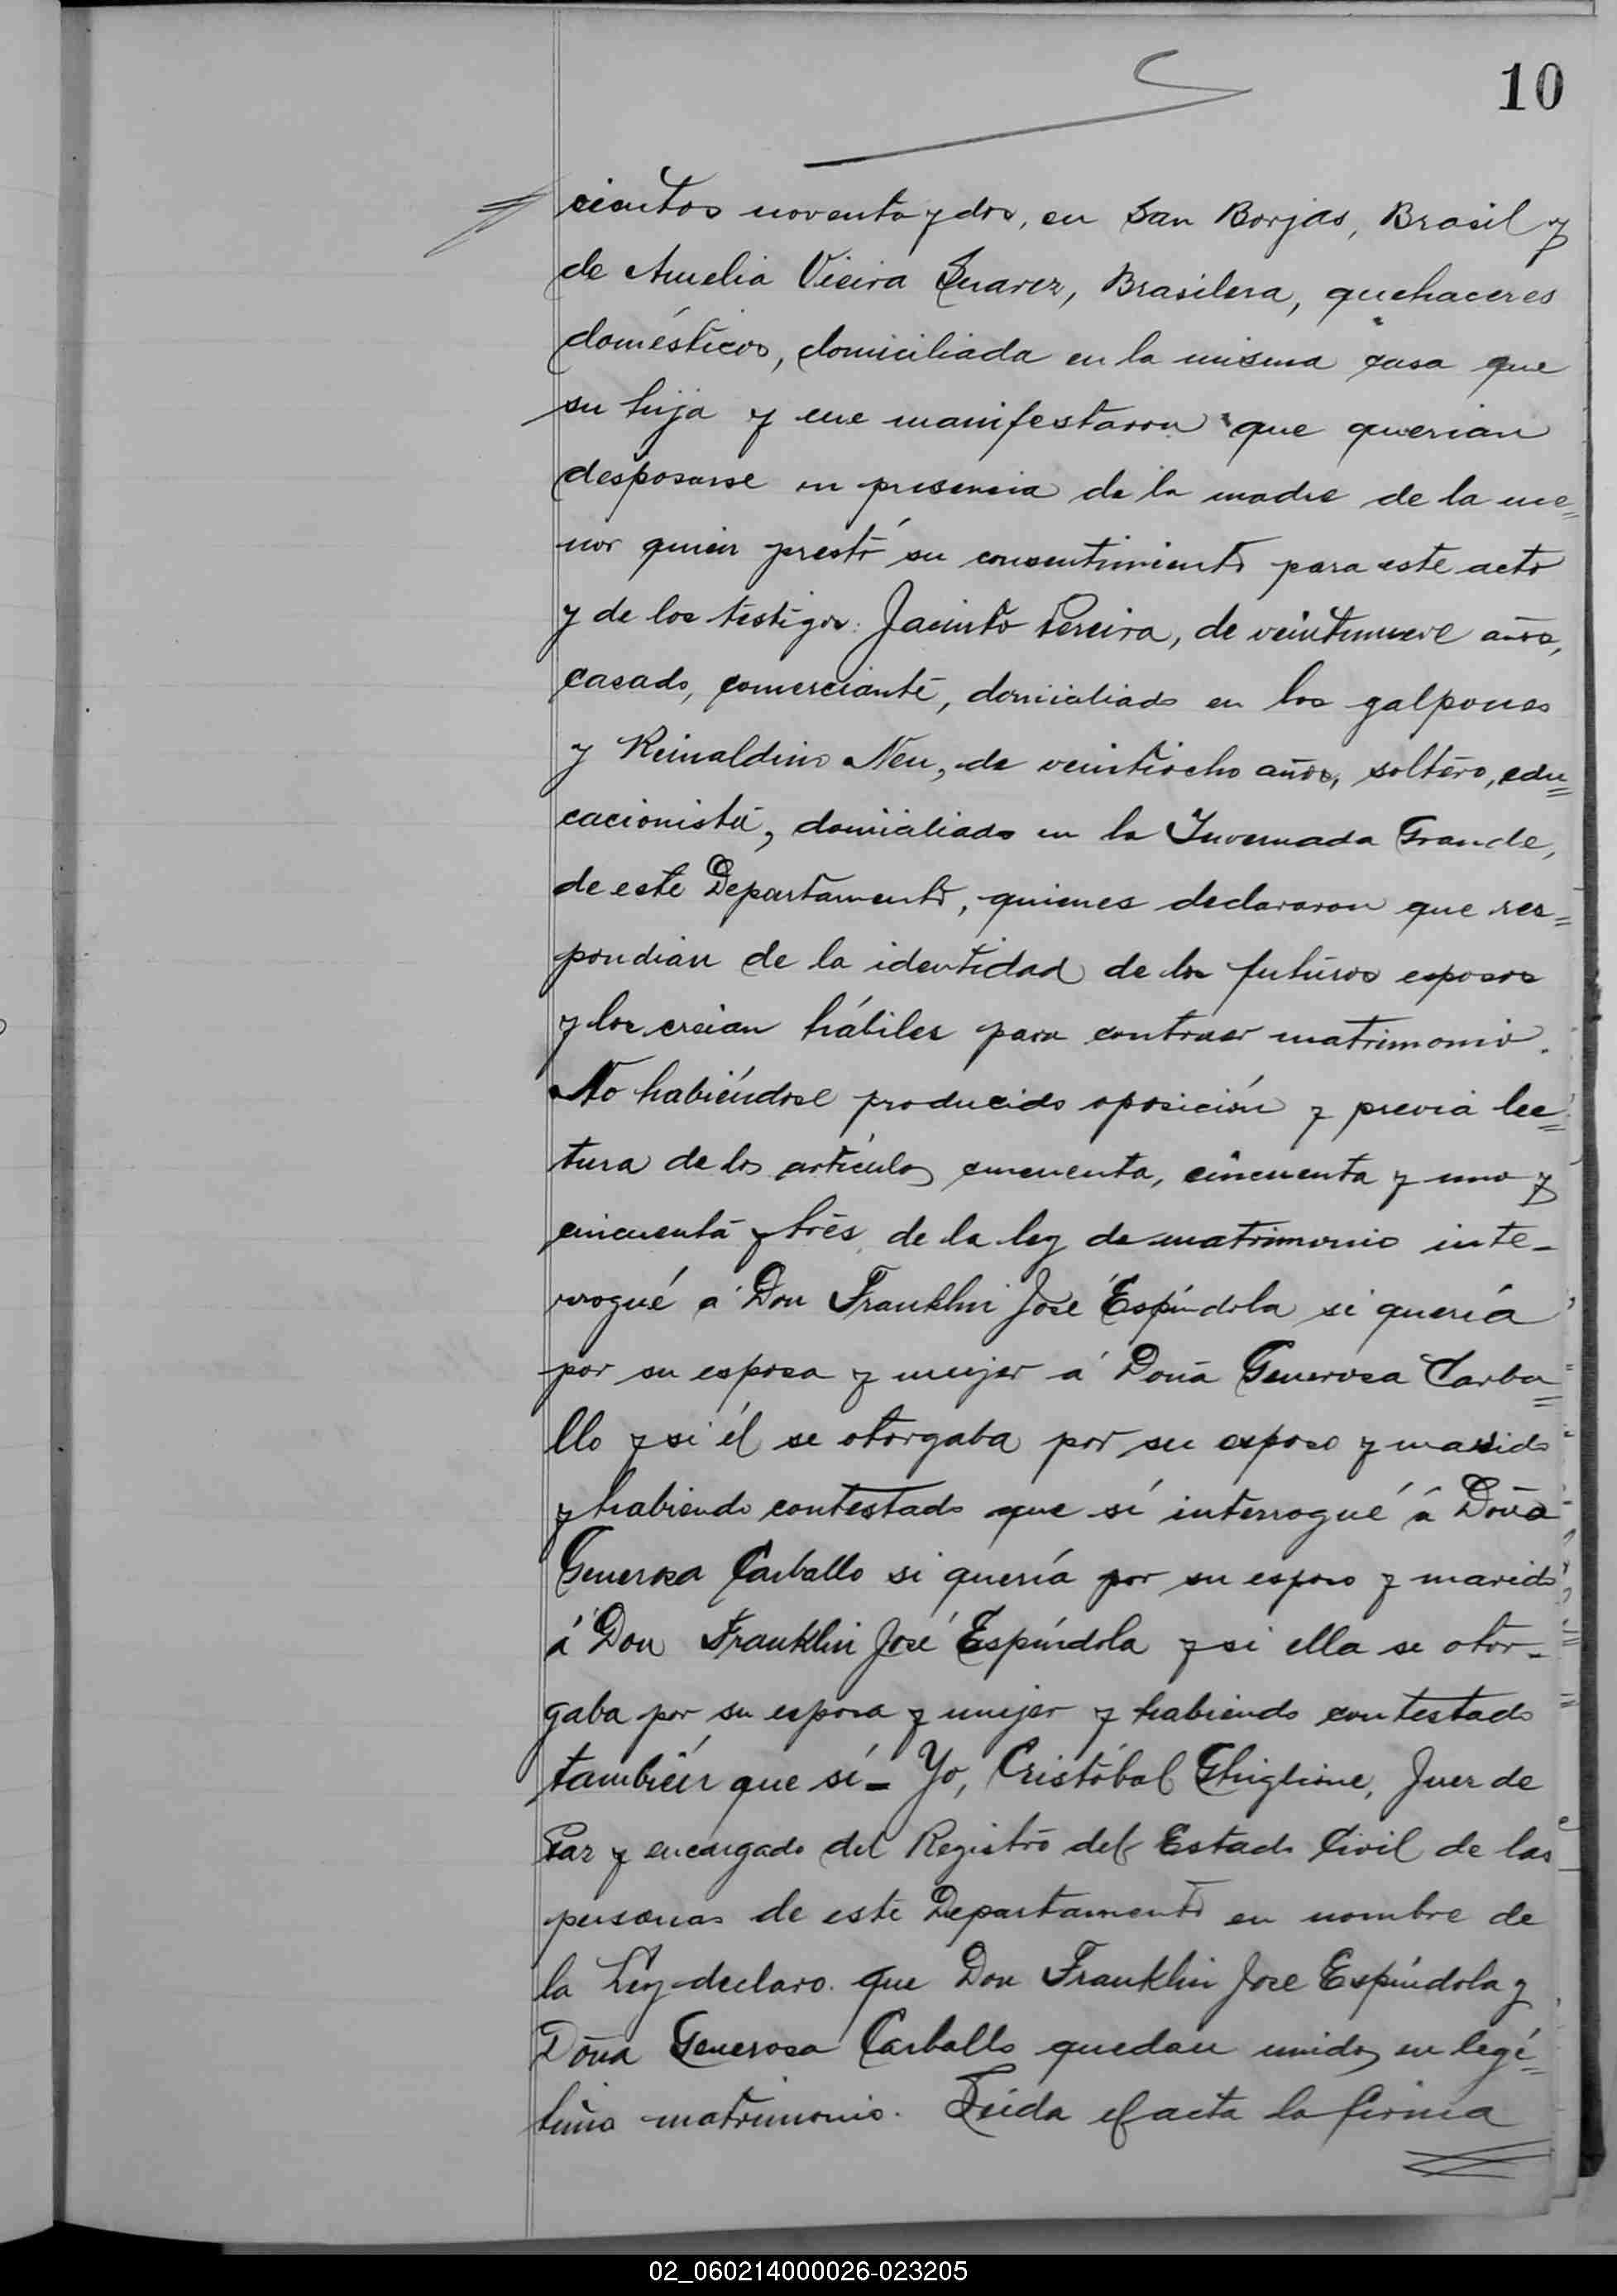 10
cientos noventa y dos, en San Borjas, Brasil y
de Amelia Vieira Suarez, Brasilera, quehaceres
domésticos, domiciliada en la misma casa que
su hija y me manifestaron que querian
desposarse en presencia de la madre de la me=
nor quien prestó su consentimiento para este acto
y de los testigos: Jacinto Pereira, de veintinueve años,
casado, comerciante, domiciliado en los galpones
y Reinaldino Neu, de veintiocho años, soltero, edu=
cacionista, domiciliado en la Invernada Grande,
de este Departamento, quienes declararon que res=
pondian de la identidad de los futuros esposos
y los creian hábiles para contraer matrimonio.
No habiéndose producido oposición y previa lec=
tura de los artículos cincuenta, cincuenta y uno y
cincuenta y tres de la ley de matrimonio inte-
rrogué á Don Franklin José Espíndola si quería
por su esposa y mujer á Doña Generosa Carba=
llo y si él se otorgaba por su esposo y marido
y habiendo contestado que sí interrogué á Doña
Generosa Carballo si quería por su esposo y marido
á Don Franklin José Espíndola y si ella se otor-
gaba por su esposa y mujer y habiendo contestado
también que sí - Yo, Cristóbal Ghiglione, Juez de
Paz y encargado del Registro del Estado Civil de las
personas de este Departamento en nombre de
la Ley declaro que Don Franklin Jose Espíndola y
Doña Generosa Carballo quedan unidos en legí=
timo matrimonio. Leida el acta la firma
02_060214000026-023205